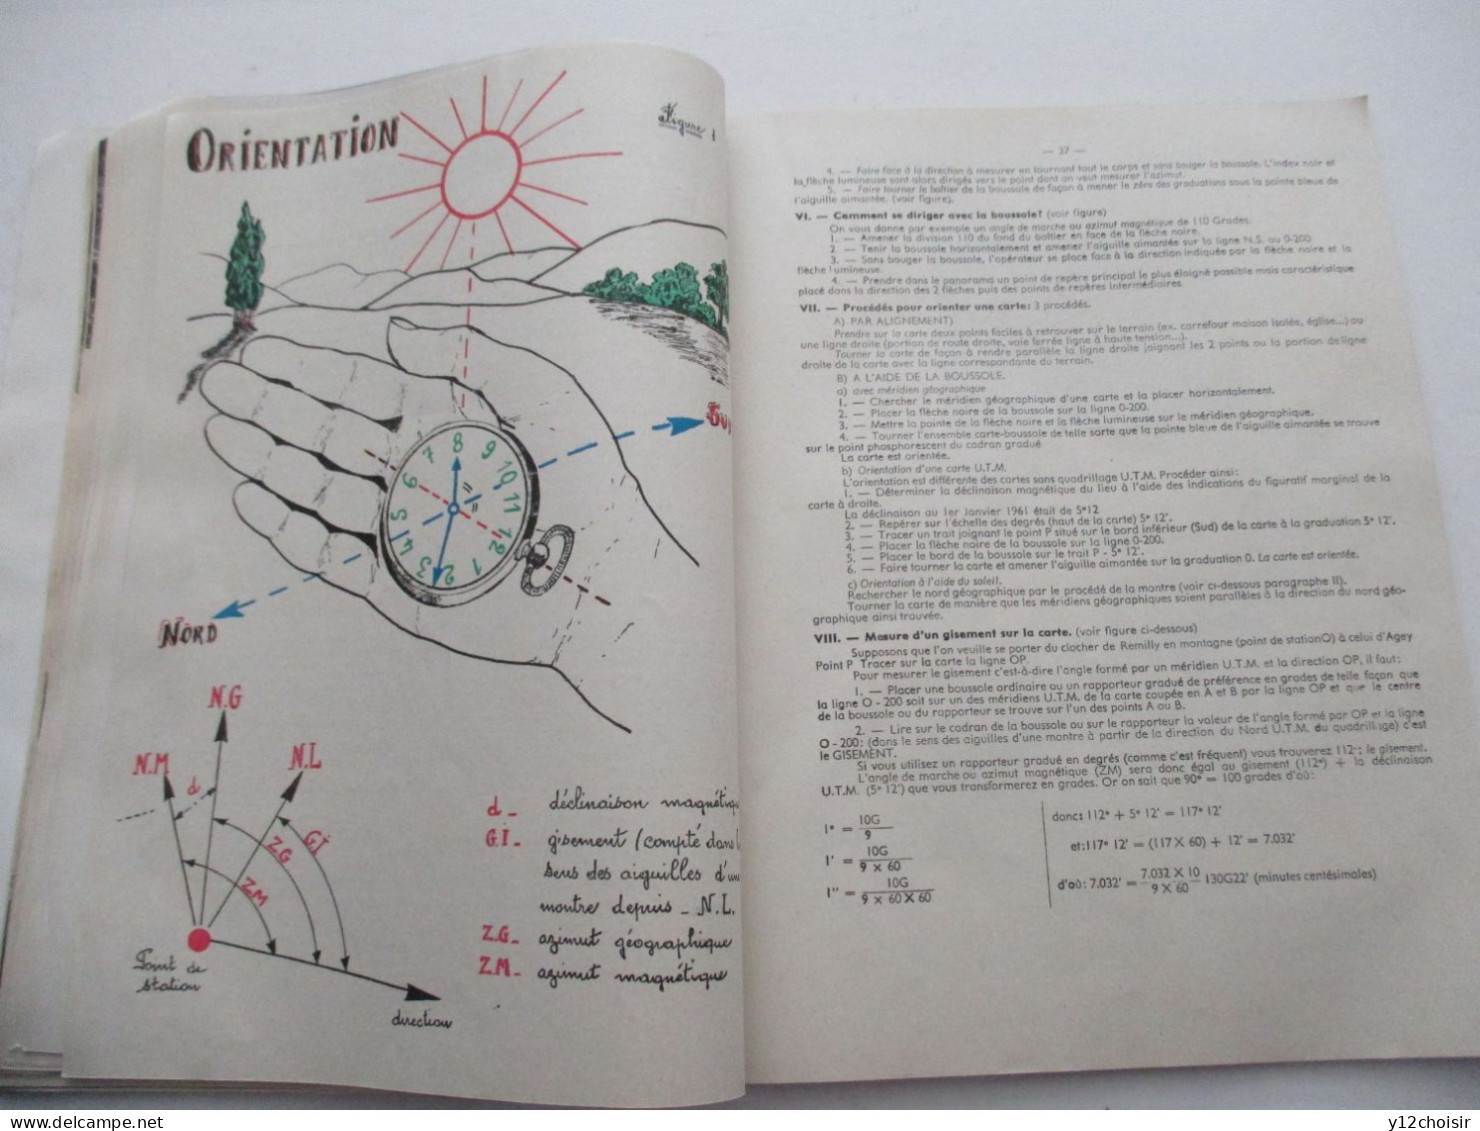 ORIENTATION
Figure 1
8
9
10
11
12
1
2
3
4
5
6
7
NORD
N.G
N.M
N.L
d
G.I
Z.G
Z.M
Point de
station
direction
d_ déclinaison magnétiq
G.I_ gisement (compté dans l
sens des aiguilles d'un
montre depuis _ N.L.
Z.G_ azimut géographique
Z.M_ azimut magnétique
— 37 —
4. — Faire face à la direction à mesurer en tournant tout le corps et sans bouger la boussole. L'index noir et
la flèche lumineuse sont alors dirigés vers le point dont on veut mesurer l'azimut.
5. — Faire tourner le boîtier de la boussole de façon à mener le zéro des graduations sous la pointe bleue de
l'aiguille aimantée. (voir figure).
VI. — Comment se diriger avec la boussole? (voir figure)
On vous donne par exemple un angle de marche ou azimut magnétique de 110 Grades.
1. — Amener la division 110 du fond du boîtier en face de la flèche noire.
2. — Tenir la boussole horizontalement et amener l'aiguille aimantée sur la ligne N.S. ou 0-200.
3. — Sans bouger la boussole, l'opérateur se place face à la direction indiquée par la flèche noire et la
flèche lumineuse.
4. — Prendre dans le panorama un point de repère principal le plus éloigné possible mais caractéristique
placé dans la direction des 2 flèches puis des points de repères intermédiaires.
VII. — Procédés pour orienter une carte: 3 procédés.
A) PAR ALIGNEMENT)
Prendre sur la carte deux points faciles à retrouver sur le terrain (ex. carrefour maison isolée, église...) ou
une ligne droite (portion de route droite, voie ferrée ligne à haute tension...).
Tourner la carte de façon à rendre parallèle la ligne droite joignant les 2 points ou la portion de ligne
droite de la carte avec la ligne correspondante du terrain.
B) A L'AIDE DE LA BOUSSOLE.
a) avec méridien géographique
1. — Chercher le méridien géographique d'une carte et la placer horizontalement.
2. — Placer la flèche noire de la boussole sur la ligne 0-200.
3. — Mettre la pointe de la flèche noire et la flèche lumineuse sur le méridien géographique.
4. — Tourner l'ensemble carte-boussole de telle sorte que la pointe bleue de l'aiguille aimantée se trouve
sur le point phosphorescent du cadran gradué
La carte est orientée.
b) Orientation d'une carte U.T.M.
L'orientation est différente des cartes sans quadrillage U.T.M. Procéder ainsi:
1. — Déterminer la déclinaison magnétique du lieu à l'aide des indications du figuratif marginal de la
carte à droite.
La déclinaison au 1er Janvier 1961 était de 5°12
2. — Repérer sur l'échelle des degrés (haut de la carte) 5° 12'.
3. — Tracer un trait joignant le point P situé sur le bord inférieur (Sud) de la carte à la graduation 5° 12'.
4. — Placer la flèche noire de la boussole sur la ligne 0-200.
5. — Placer le bord de la boussole sur le trait P - 5° 12'.
6. — Faire tourner la carte et amener l'aiguille aimantée sur la graduation 0. La carte est orientée.
c) Orientation à l'aide du soleil.
Rechercher le nord géographique par le procédé de la montre (voir ci-dessous paragraphe II).
Tourner la carte de manière que les méridiens géographiques soient parallèles à la direction du nord géo-
graphique ainsi trouvée.
VIII. — Mesure d'un gisement sur la carte. (voir figure ci-dessous)
Supposons que l'on veuille se porter du clocher de Remilly en montagne (point de stationO) à celui d'Agey
Point P Tracer sur la carte la ligne OP.
Pour mesurer le gisement c'est-à-dire l'angle formé par un méridien U.T.M. et la direction OP, il faut:
1. — Placer une boussole ordinaire ou un rapporteur gradué de préférence en grades de telle façon que
la ligne O - 200 soit sur un des méridiens U.T.M. de la carte coupée en A et B par la ligne OP et que le centre
de la boussole ou du rapporteur se trouve sur l'un des points A ou B.
2. — Lire sur le cadran de la boussole ou sur le rapporteur la valeur de l'angle formé par OP et la ligne
O - 200: (dans le sens des aiguilles d'une montre à partir de la direction du Nord U.T.M. du quadrillage) c'est
le GISEMENT.
Si vous utilisez un rapporteur gradué en degrés (comme c'est fréquent) vous trouverez 112°; le gisement.
L'angle de marche ou azimut magnétique (ZM) sera donc égal au gisement (112°) + la déclinaison
U.T.M. (5° 12') que vous transformerez en grades. Or on sait que 90° = 100 grades d'où:
1° = 10G / 9
1' = 10G / 9 × 60
1'' = 10G / 9 × 60 × 60
donc: 112° + 5° 12' = 117° 12'
et: 117° 12' = (117 X 60) + 12' = 7.032'
d'où: 7.032' = 7.032 X 10 / 9 X 60 130G22' (minutes centésimales)
y12choisir